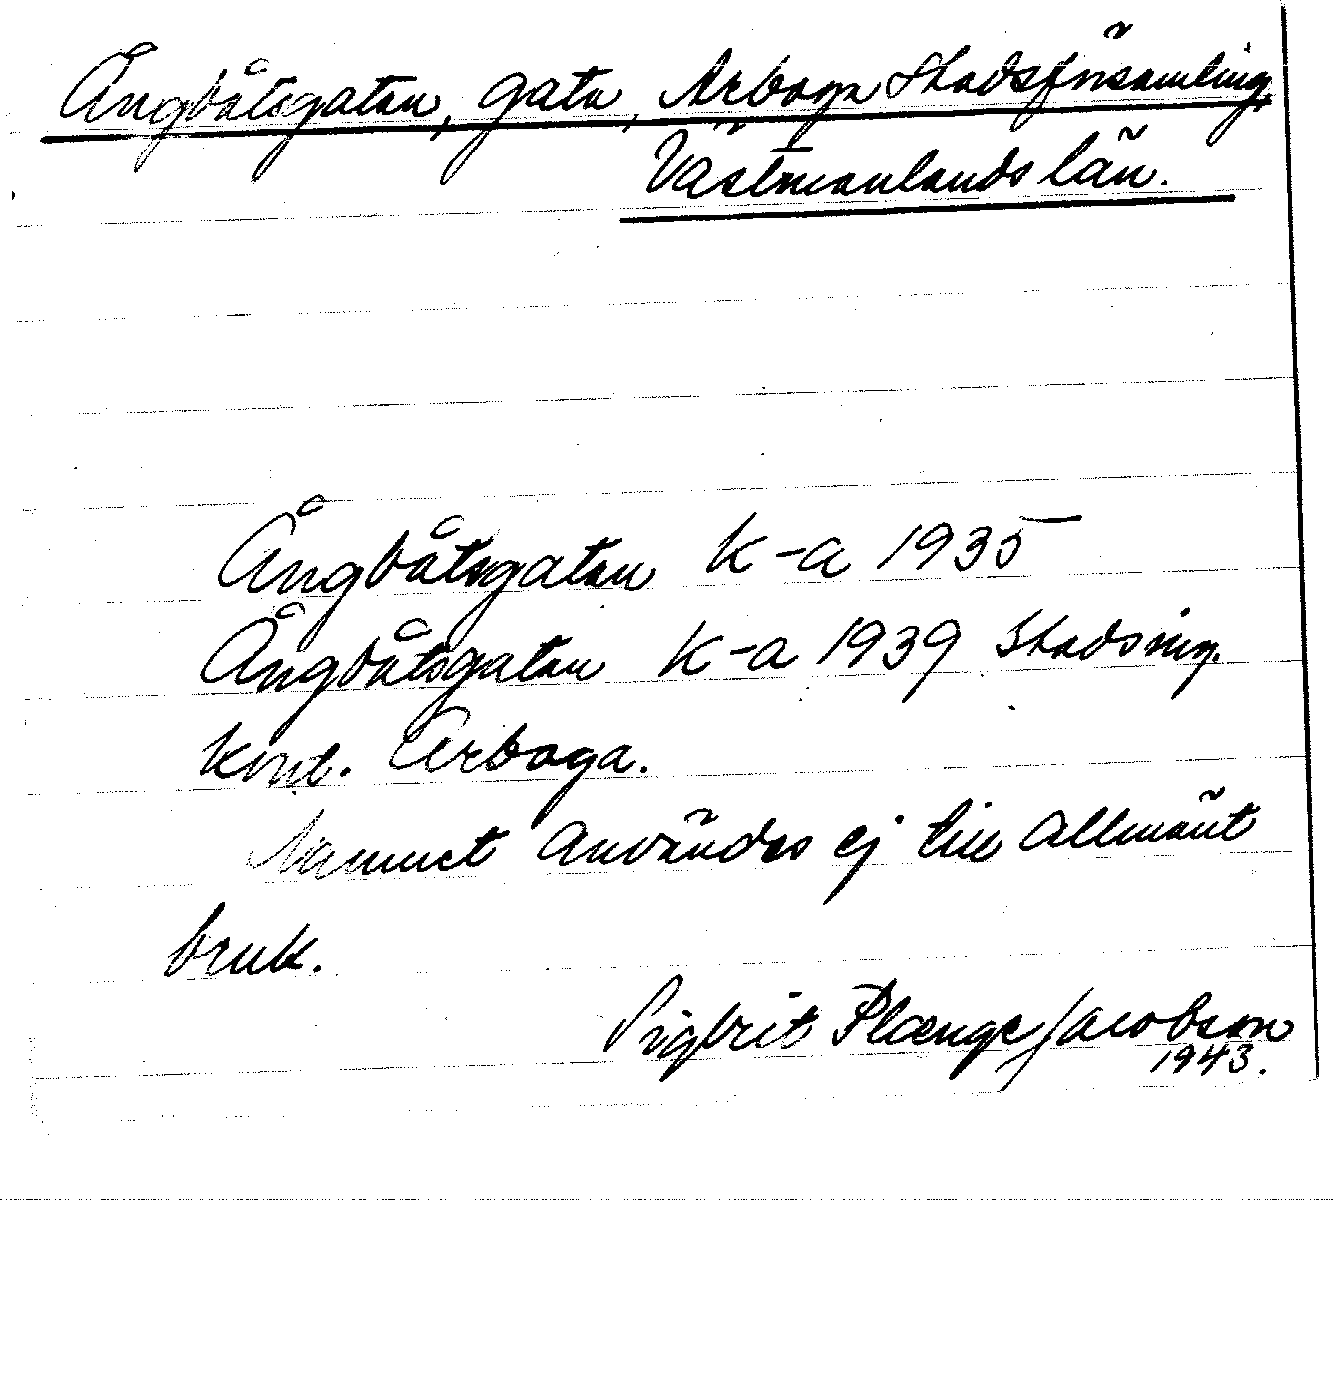 Ångbåtsgatan, gata, Arboga Stadsförsamling,
Västmanlands län.
Ångbåtsgatan K-a 1935
Ångbåtsgatan K-a 1939 Stadsing.
Kont. Arboga.
Namnet användes ej till allmänt
bruk.
Sigbrit Plænge Jacobson
1943.